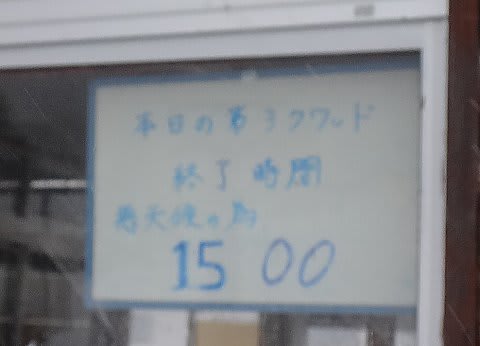 本日の第3クワッド
終了時間
悪天候の為
15 00